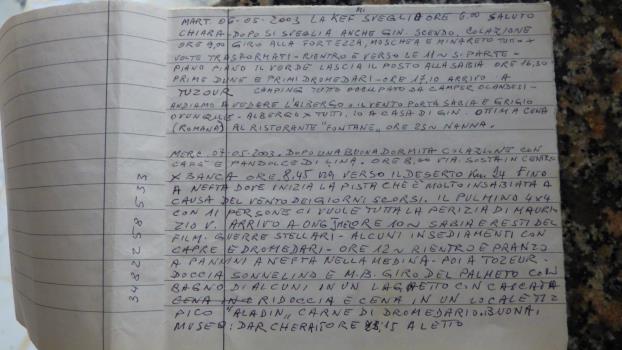 MART. 06-05-2003 LA KEF SVEGLIA ORE 6.00 SALUTO
CHIARA. DOPO SI SVEGLIA ANCHE GIN. SCENDO, COLAZIONE
ORE 9,00 GIRO ALLA FORTEZZA, MOSCHEA E MINARETO TUTTO X
VOLTE TRASFORMATI - RIENTRO E VERSO LE 11N SI PARTE -
PIANO PIANO IL VERDE LASCIA IL POSTO ALLA SABIA ORE 16,30
PRIME DUNE E PRIMI DROMEDARI - ORE 17,10 ARRIVO A
TUZOUR CAMPING TUTTO OCCUPATO DA CAMPER OLANDESI -
ANDIAMO A VEDERE L'ALBERGO. IL VENTO PORTA SABIA E GRIGIO
OVUNQUE - ALBERGO X TUTTI, IO A CASA DI GIN. OTTIMA CENA
(ROMANA) AL RISTORANTE "FONTANE" ORE 23N NANNA.
MERC. 07-05-2003. DOPO UNA BUONA DORMITA COLAZIONE CON
CAFÈ E PANDOLCE DI LINA. ORE 8,00 VIA. SOSTA IN CENTRO
X BANCA ORE 8.45 VIA VERSO IL DESERTO Km 24 FINO
A NEFTA DOVE INIZIA LA PISTA CHE È MOLTO INSABIATA A
CAUSA DEL VENTO DEI GIORNI SCORSI. IL PULMINO 4X4
CON 11 PERSONE CI VUOLE TUTTA LA PERIZIA DI MAURI
ZIO V. ARRIVO A ORE 10N SABIA E RESTI DEL
FILM: GUERRE STELLARI - ALCUNI INSEDIAMENTI CON
CAPRE E DROMEDARI - ORE 12N RIENTRO E PRANZO
A PANINI A NEFTA NELLA MEDINA - POI A TOZEUR.
DOCCIA SONNELINO E M.B. GIRO DEL PALMETO CON
BAGNO DI ALCUNI IN UN LAGHETTO CON CASCATA
CENA IN RIDOCCIA E CENA IN UN LOCALE TI
PICO "ALADIN" CARNE DI DROMEDARIO. BUONA.
MUSEO: DAR CHERAIT ORE 23,15 A LETTO
348 22 58 533